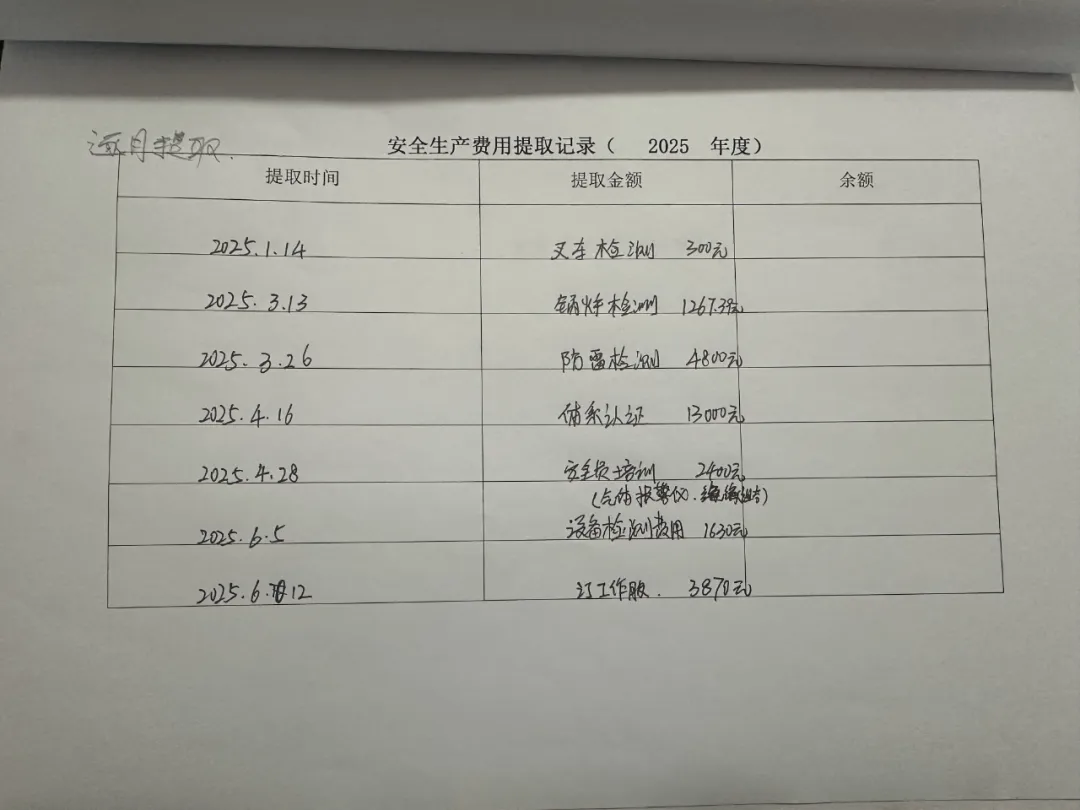 逐月提取.
安全生产费用提取记录（ 2025 年度）
提取时间 提取金额 余额
2025.1.14 叉车检测 300元
2025.3.13 锅炉检测 1267.39元
2025.3.26 防雷检测 4800元
2025.4.16 体系认证 13000元
2025.4.28 安全员培训 2400元
(气体报警仪.
2025.6.5 设备检测费用 1630元
2025.6.12 订工作服. 3870元